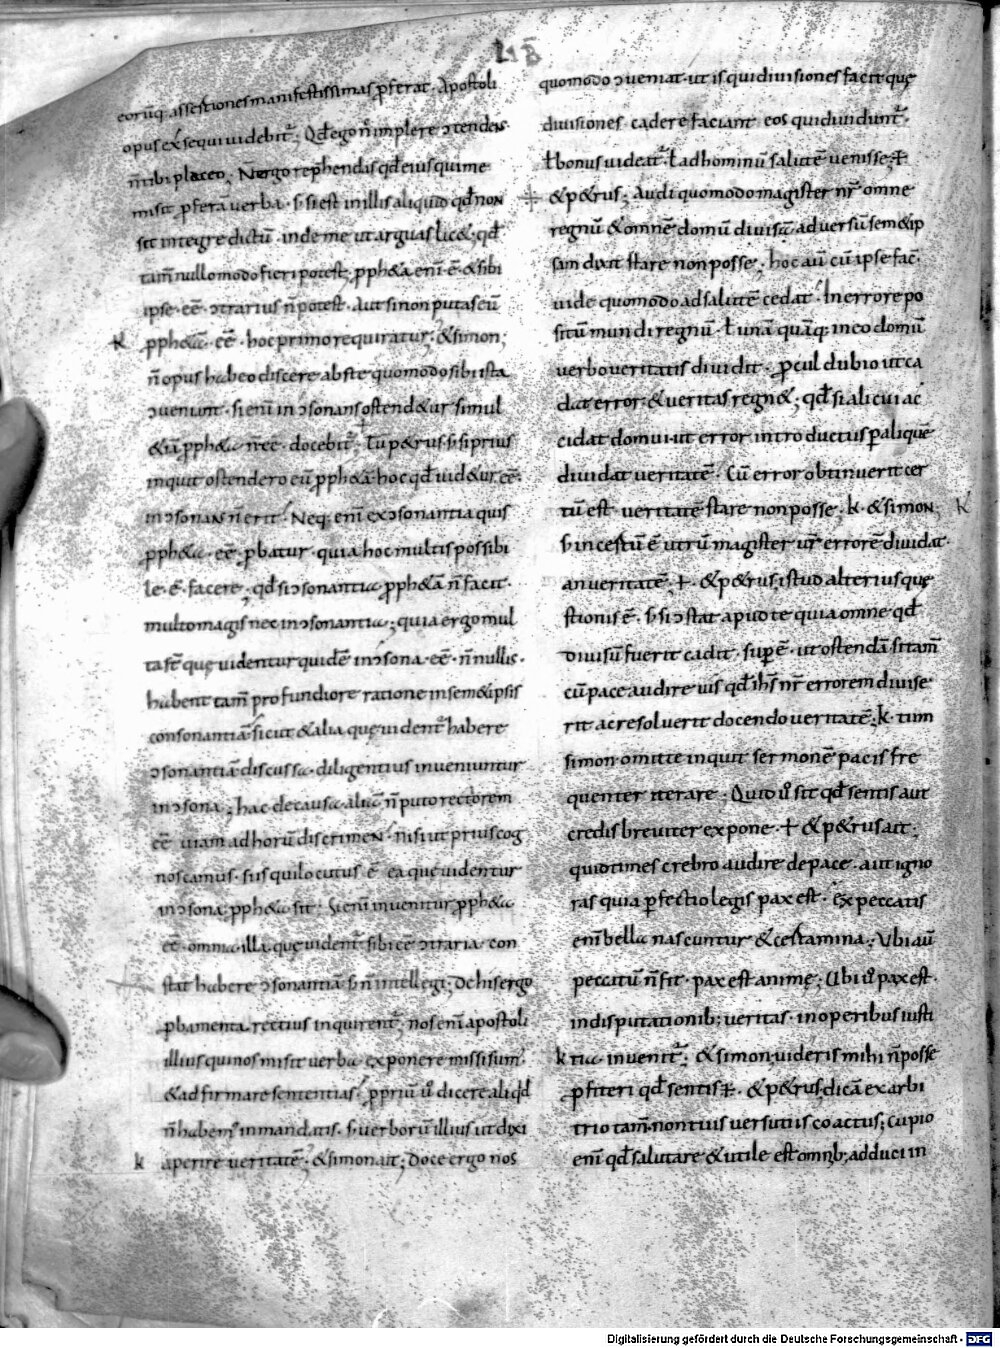 L·I·B̄
eorūq· assertiones manifestissimas ꝓferat· Apostoli
opus exsequi videbit᷑; Qđ ego n̄ implere ↄtendens·
m̄ ibi placeo; N̄ ergo rep̄hendis qđ eius qui me
misit ꝓfera verba· s· si est in illis aliquid qđ non
sit integre dictū· inde me ut arguas lic&; qđ
tam̄ nullomodo fieri potest; ꝓph&a enī· ē· & sibi
ipse· eē· ↄtrarius n̄ potest· Aut si non putas eū
k ꝓph&a· eē· hoc primo requiratur; & simon;
n̄ opus habeo discere abs te quomodo sibi ista
ↄveniunt· si enī inↄsonans ostend&ur simul
&iā ꝓph&a n̄ eē· docebit᷑; Tu p&rus· s· si prius
inquit ostendero eū ꝓph&ā· hoc qđ vid&ur· eē·
inↄsonan n̄ erit; Neq; enī ex ↄsonantia quis
ꝓph&a· eē· ꝓbatur· quia hoc multis possibi
le· ē· facere; qđ si ↄsonantia ꝓph&ā n̄ facit·
multo magis nec inↄsonantia; quia ergo mul
ta sᵗ quę videntur quidē inↄsona· eē· n̄ nullis·
habent tam̄ profundiore ratione in sem&ipsis
consonantiā sicut & alia quę vident᷑ habere
ↄsonantiā discussa· diligentius inveniuntur
inↄsona; hac de causa aliā n̄ puto rectiorem
eē viam ad horū discrimen· nisi ut prius cog
noscamus· si is qui locutus· ē· ea quę videntur
inↄsona; ꝓph&a sit; Si enī invenitur ꝓph&a
eē· omnia illa quę vident᷑ sibi eē ↄtraria· con
stat habere ↄsonantiā· s· n̄ intellegi; De his ergo
ꝓbamenta rectius inquirent᷑; nos enī apostoli
illius qui nos misit verba exponere missi sum᷒·
& adfirmare sententias; ꝓpriū v̊ dicere aliqđ
n̄ habem᷒ in mandatis· s· verborū illius ut dixi
k aperire veritatē; & simon ait; Doce ergo nos
quomodo ↄveniat· ut is qui divisiones facit quę
divisiones cadere faciant eos qui dividunt᷑·
ł bonus videat᷑· ł ad hominū salutē venisse; ⳨
& p&rus; Audi quomodo magister nr̄ omne
regnū & omnē domū divisā adversū sem&ip
sam dixit stare non posse; hoc aū cū ipse fac̄·
vide quomodo ad salutē cedat; In errore po
sitū mundi regnū· ł unā quāq; in eo domū
verbo veritatis dividit· ꝓcul dubio ut ca
dat error· & veritas regn&; qđ si alicui ac
cidat domui ut error introductus ꝑ alique
dividat veritatē· Cū error obtinverit cer
tū est veritatē stare non posse· k· & simon; k
s· incertū ē utrū magister vr̄ errorē dividat·
an veritatē· ⳨· & p&rus; istud alterius quę
stionis ē· s· si ↄstat apud te quia omne qđ
divisū fuerit cadit· sup̄ ē· ut ostendā si tam̄
cū pace audire vis qđ ihs̄ nr̄ errorem divise
rit ac resolverit docendo veritatē; k· tum
simon· omitte inquit sermonē pacis fre
quenter iterare; Quid v̊ sit qđ sentis aut
credis breviter expone· ⳨ & p&rus ait;
quid times crebro audire de pace· aut igno
ras quia ꝑfectio legis pax est· Ex peccatis
enī bella nascuntur & certamina; Ubi aū
peccatū n̄ fit· pax est animę; Ubi v̊ pax est·
in disputationib; veritas· in operibus iusti
k tia invenit᷑; & simon; videris mihi n̄ posse
ꝓfiteri qđ sentis ⳨· & p&rus; dicā ex arbi
trio tam̄· non tuis versutiis coactus; Cupio
enī qđ salutare & utile est omib; adduci in